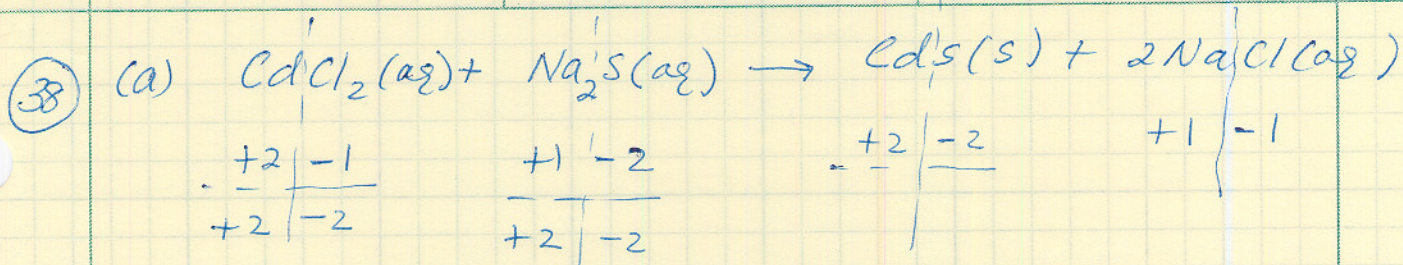 38 (a) CdCl₂(aq) + Na₂S(aq) → CdS(s) + 2NaCl(aq)
+2 | -1 +1 | -2 +2 | -2 +1 | -1
+2 | -2 +2 | -2